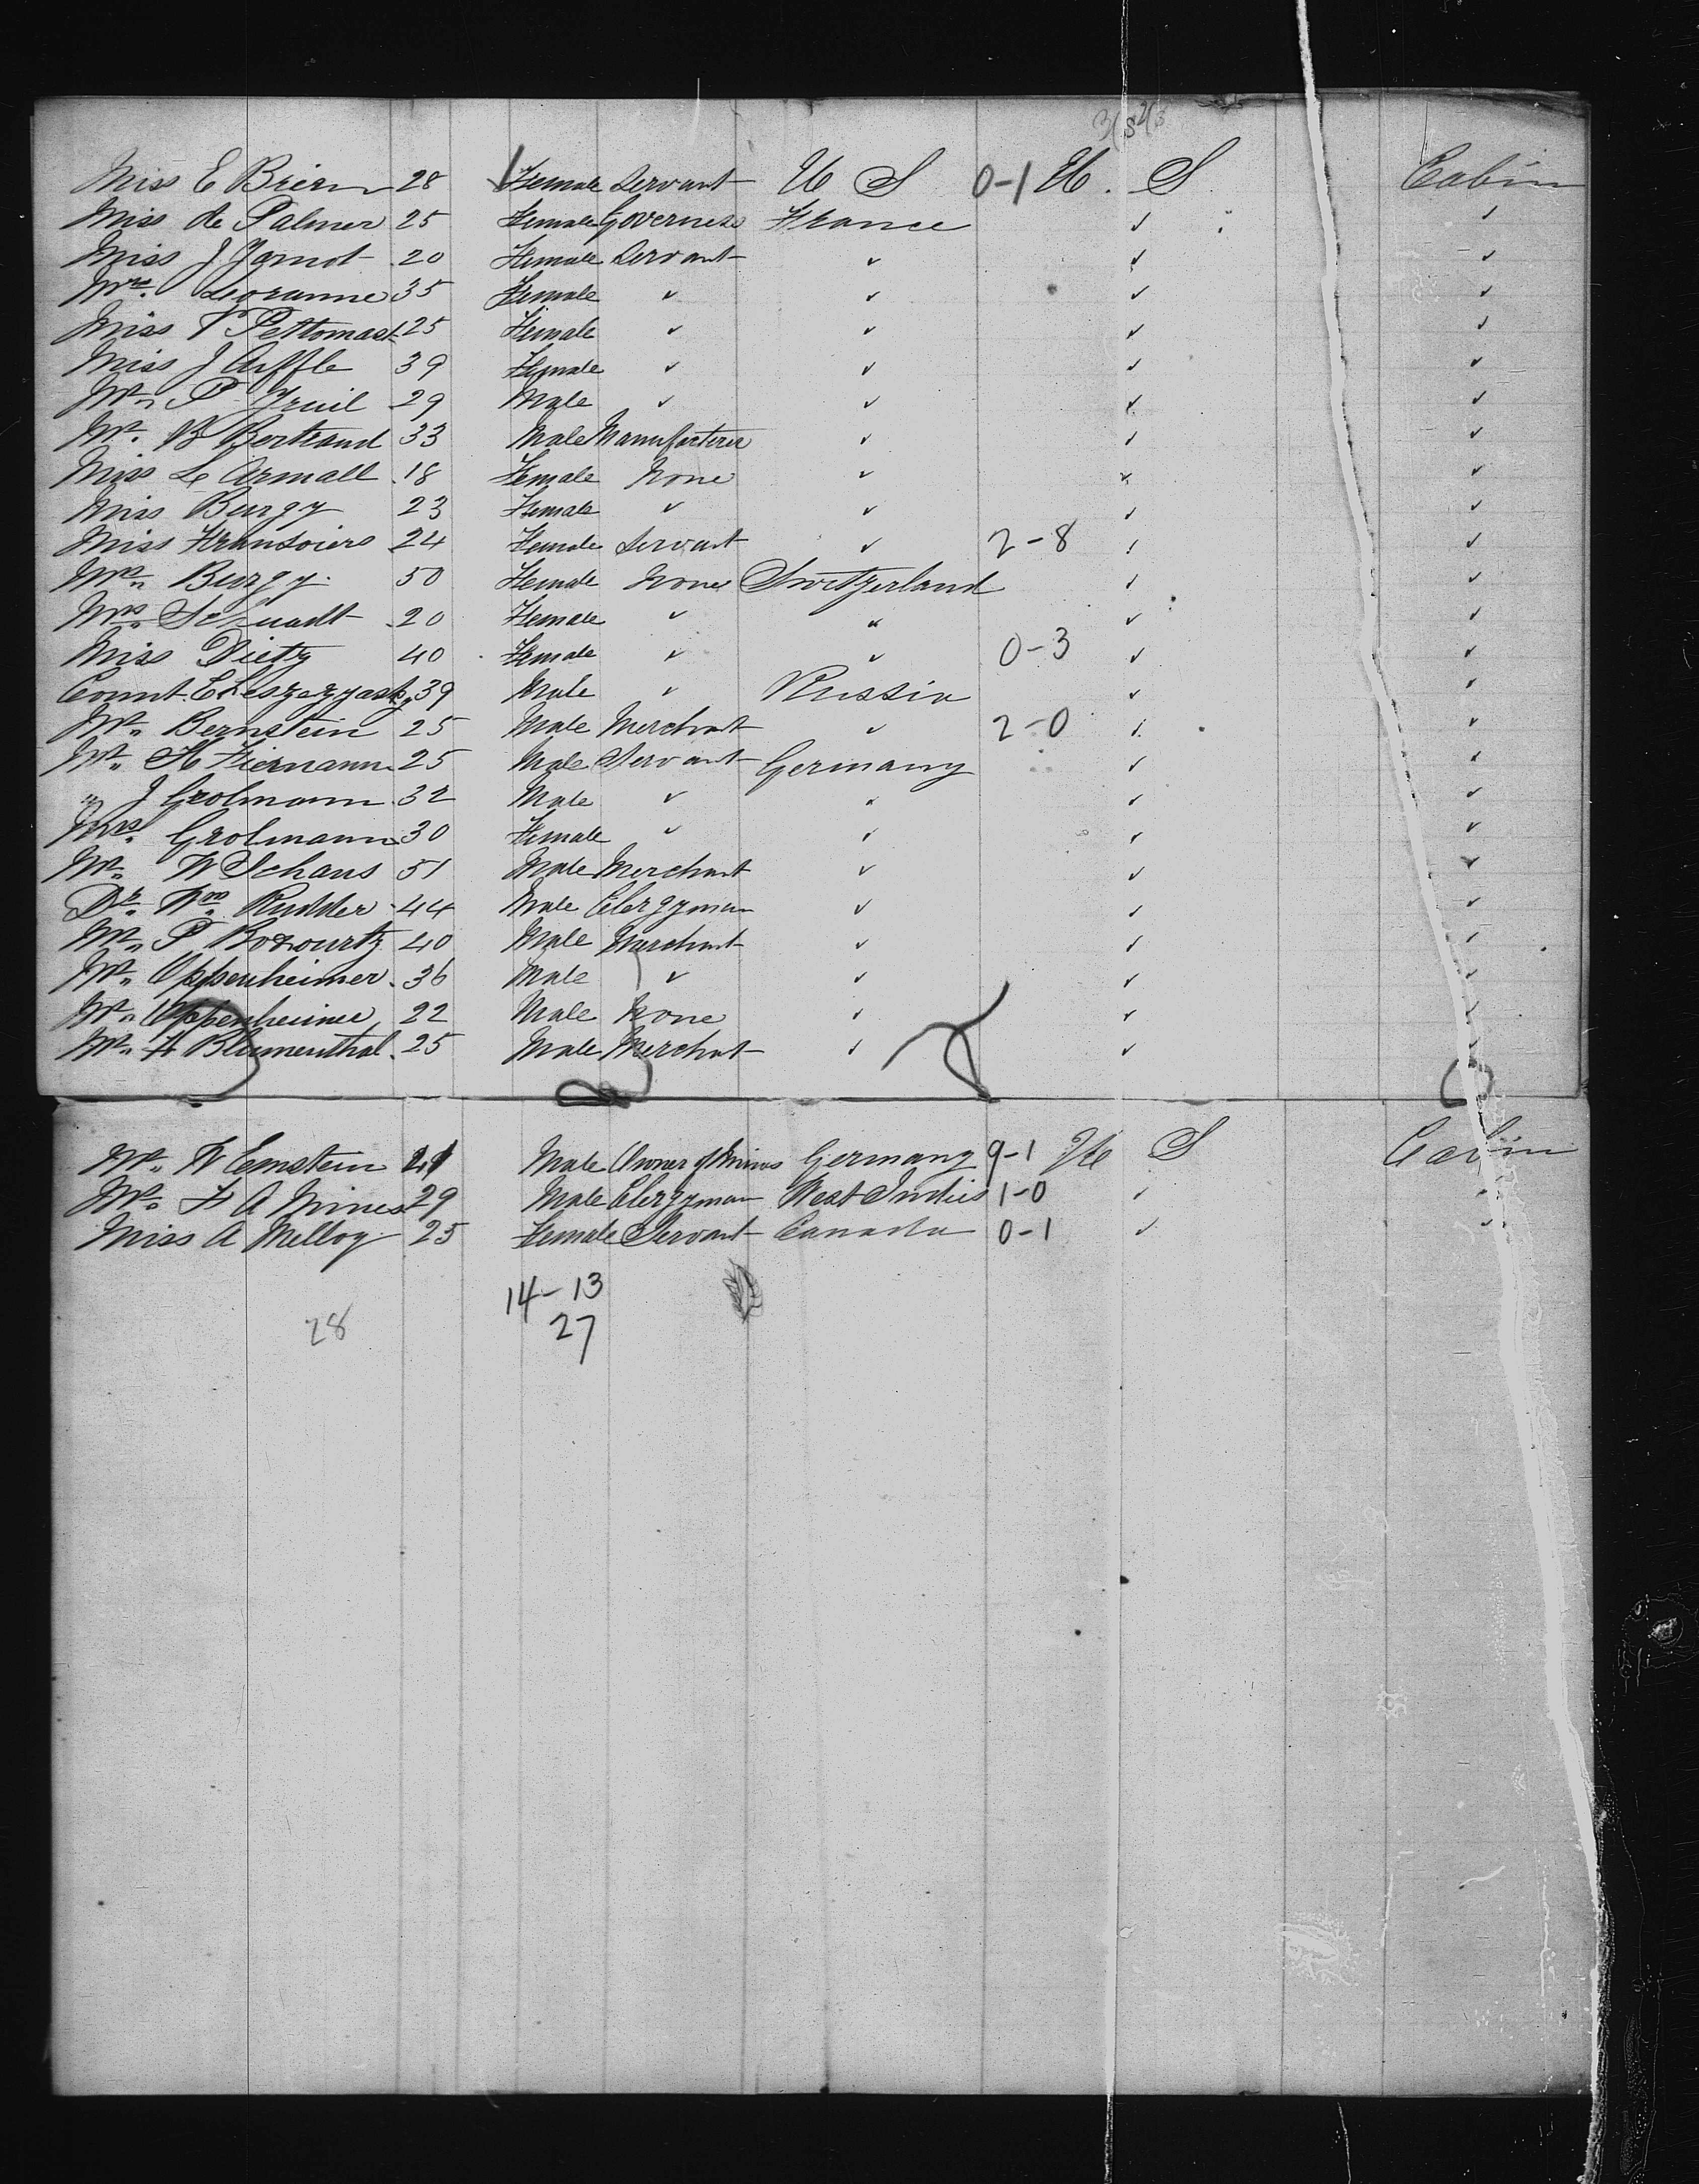 Miss E Brien 28 Female Servant U S 0-1 U. S. Cabin
Miss de Palmer 25 Female Governess France ✓ ✓
Miss J Jamot 20 Female Servant ✓ ✓ ✓
Mrs. Loranne 35 Female ✓ ✓ ✓ ✓
Miss Pettomast 25 Female ✓ ✓ ✓ ✓
Miss J Aiffle 39 Female ✓ ✓ ✓ ✓
Mr. P 29 Male ✓ ✓ ✓ ✓
Mr. B Bertrand 33 Male Manufacturer ✓ ✓ ✓
Miss Le Armall 18 Female None ✓ ✓ ✓
Miss Burgy 23 Female ✓ ✓ ✓ ✓
Miss Fransoiers 24 Female Servant ✓ 2-8 ✓ ✓
Mrs. Burgy 50 Female None Switzerland ✓ ✓
Mrs. Schuadt 20 Female ✓ " ✓ ✓
Miss Dietz 40 Female ✓ ✓ 0-3 ✓ ✓
Count 39 Male ✓ Russia ✓ ✓
Mr. Bernstein 25 Male Merchant ✓ 2-0 ✓ ✓
Mr. H Fiernann 25 Male Servant Germany ✓ ✓
" J Grolmann 32 Male ✓ ✓ ✓ ✓
Mrs. Grolmann 30 Female ✓ ✓ ✓ ✓
Mr. W Schaus 51 Male Merchant ✓ ✓ ✓
Dr. Wm. Rudder 44 Male Clergyman ✓ ✓ ✓
Mr. P 40 Male Merchant ✓ ✓ ✓
Mr. Oppenheimer 36 Male ✓ ✓ ✓ ✓
Mr. Oppenheimer 22 Male None ✓ ✓ ✓
Mr. H Blumenthal 25 Male Merchant ✓ ✓ ✓
Mr. W Emstein 21 Male Owner of Mines Germany 9-1 U S Cabin
Mr. F A Mines 29 Male Clergyman West Indies 1-0 ✓ ✓
Miss A Melloy 25 Female Servant Canada 0-1 ✓ ✓
14-13
28 27